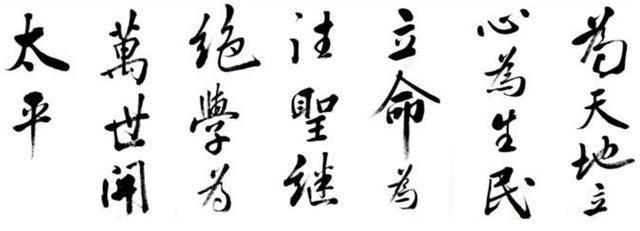 為天地立
心為生民
立命為
往聖継
絶學為
萬世開
太平